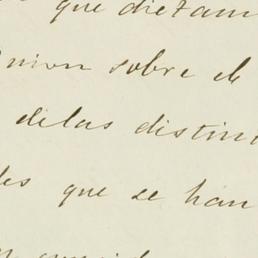 que dictam
nion sobre el
delas distin
les que se han